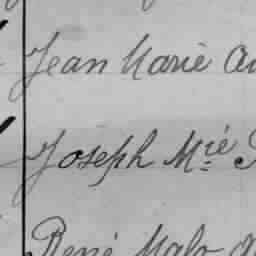 Jean Marie
Joseph Mié
René Malo